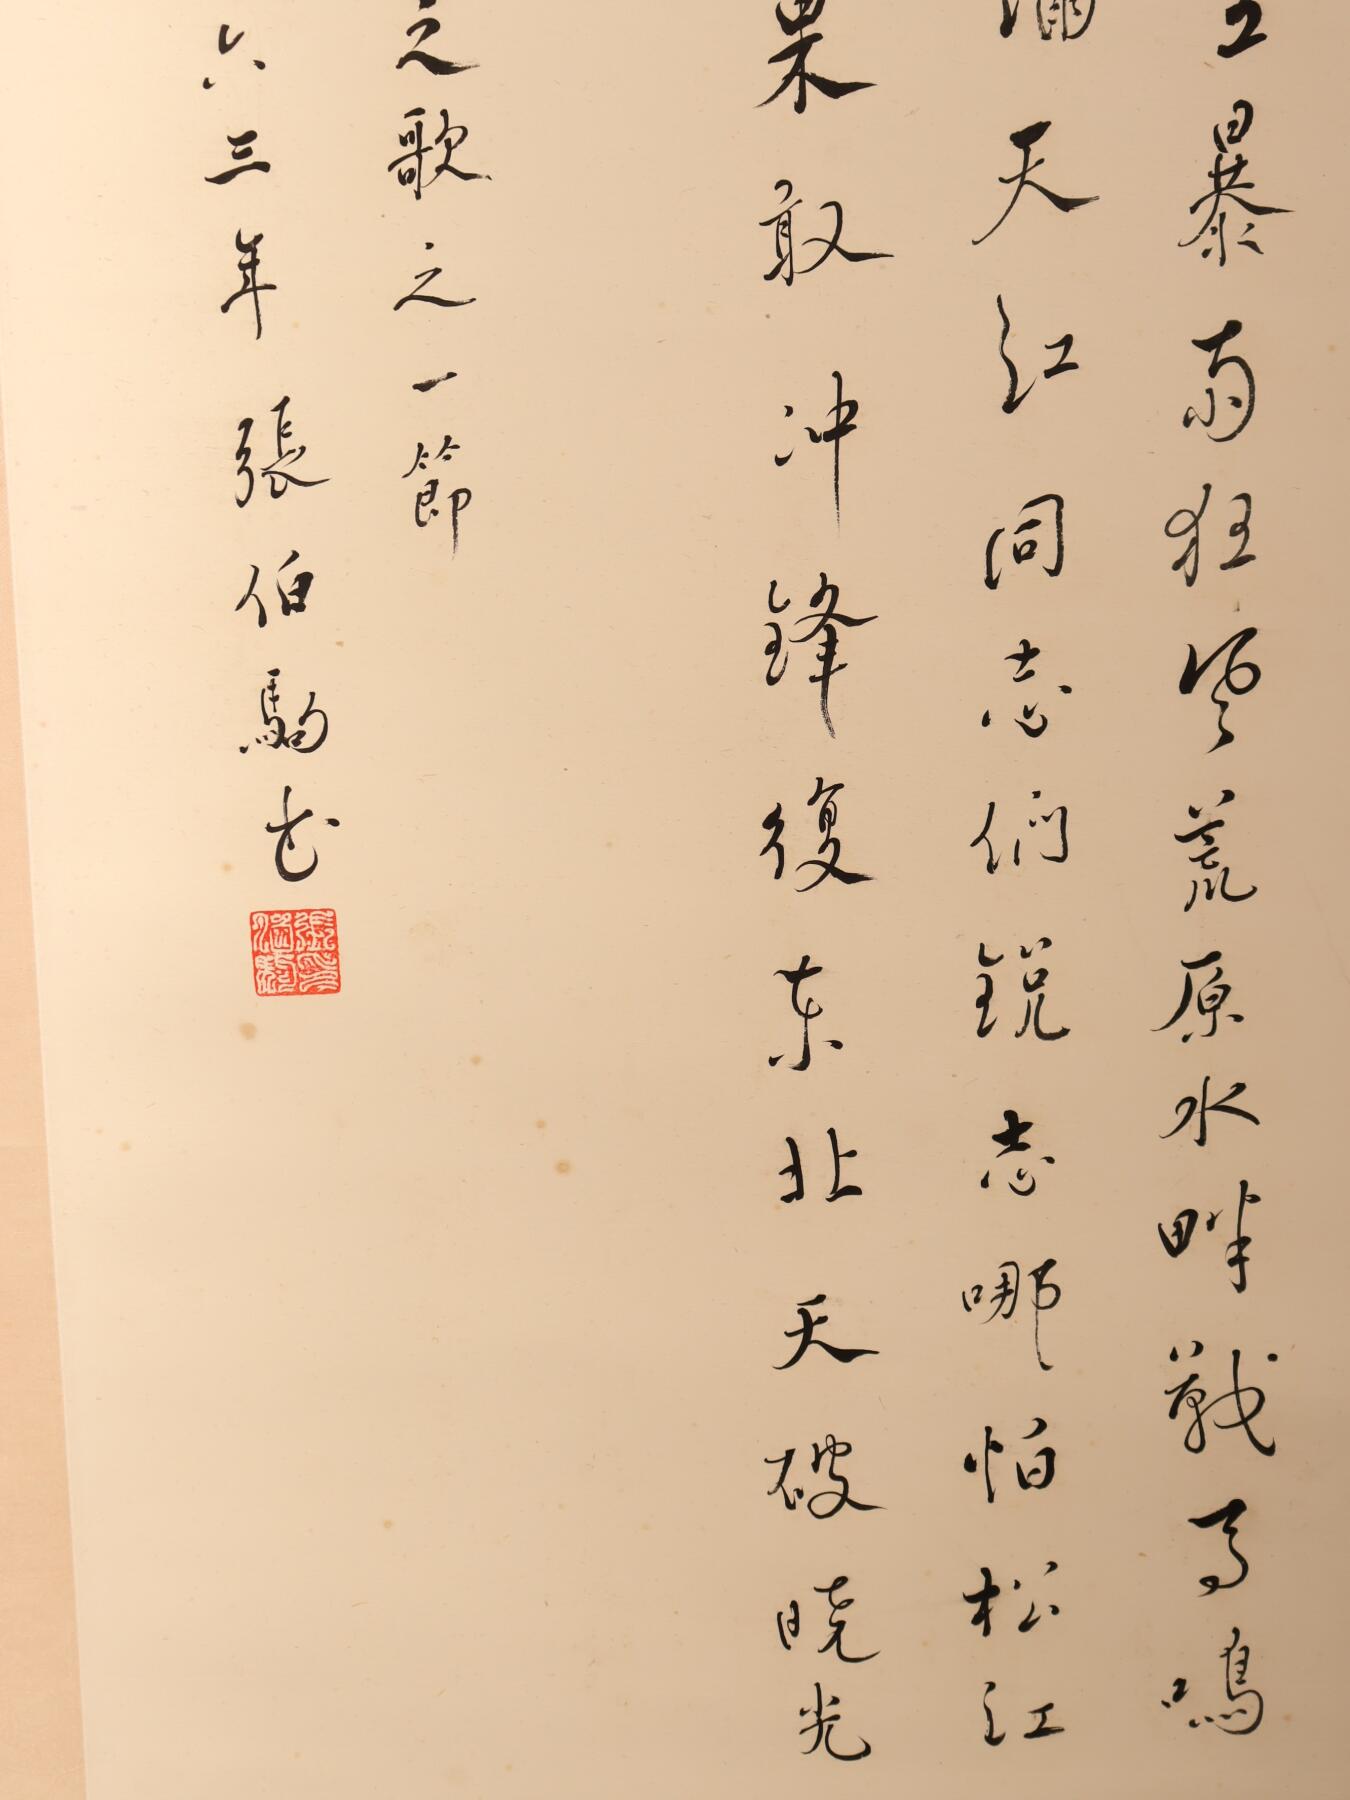 暴雨狂風荒原水畔戰馬鳴
滿天紅同志們銳志哪怕松江
果敢冲鋒復東北天破曉光
之歌之一節
六三年張伯駒書
張伯駒